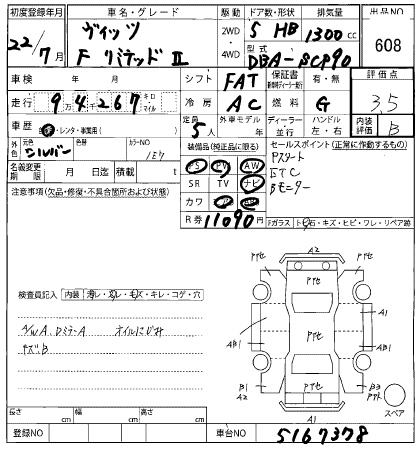 初度登録年月 車名・グレード 駆動 ドア数・形状 排気量 出品NO
22/7月 ヴィッツ 2WD・4WD 5 HB 1300cc 608
F リミテッドⅡ 型式 DBA-SCP90
車検 年 月 シフト FAT 保証書 有・無 評価点
走行 94267 キロ・マイル 冷房 AC 燃料 G 3.5
車歴 自・レンタ・事業用( ) 定員 5人 外車モデル 年 ディーラー・並行 ハンドル 左・右 内装評価 B
外色 元色 シルバー 色替 カラーNO 1E7 装備品(純正品に限る) セールスポイント(正常に作動するもの)
名義変更期限 月 日迄 積載 t PS PW AW Pスタート
注意事項(欠品・修復・不具合箇所および状態) SR TV ナビ ETC
カワ AB Bモニター
R券 11090円 Fガラス トビ石・キズ・ヒビ・ワレ・リペア跡
検査員記入 内装 汚レ・スレ・モス・キレ・コゲ・穴
A/W.A DミラーA オイルにじみ
キズ.B
A2
Pケセ Pケセ
Pケセ
A1
AB1 AB1
Pケセ
B1 A2 B3 Pケセ
A1
スペア
長さ cm 幅 cm 高さ cm
登録NO 車台NO 5167378